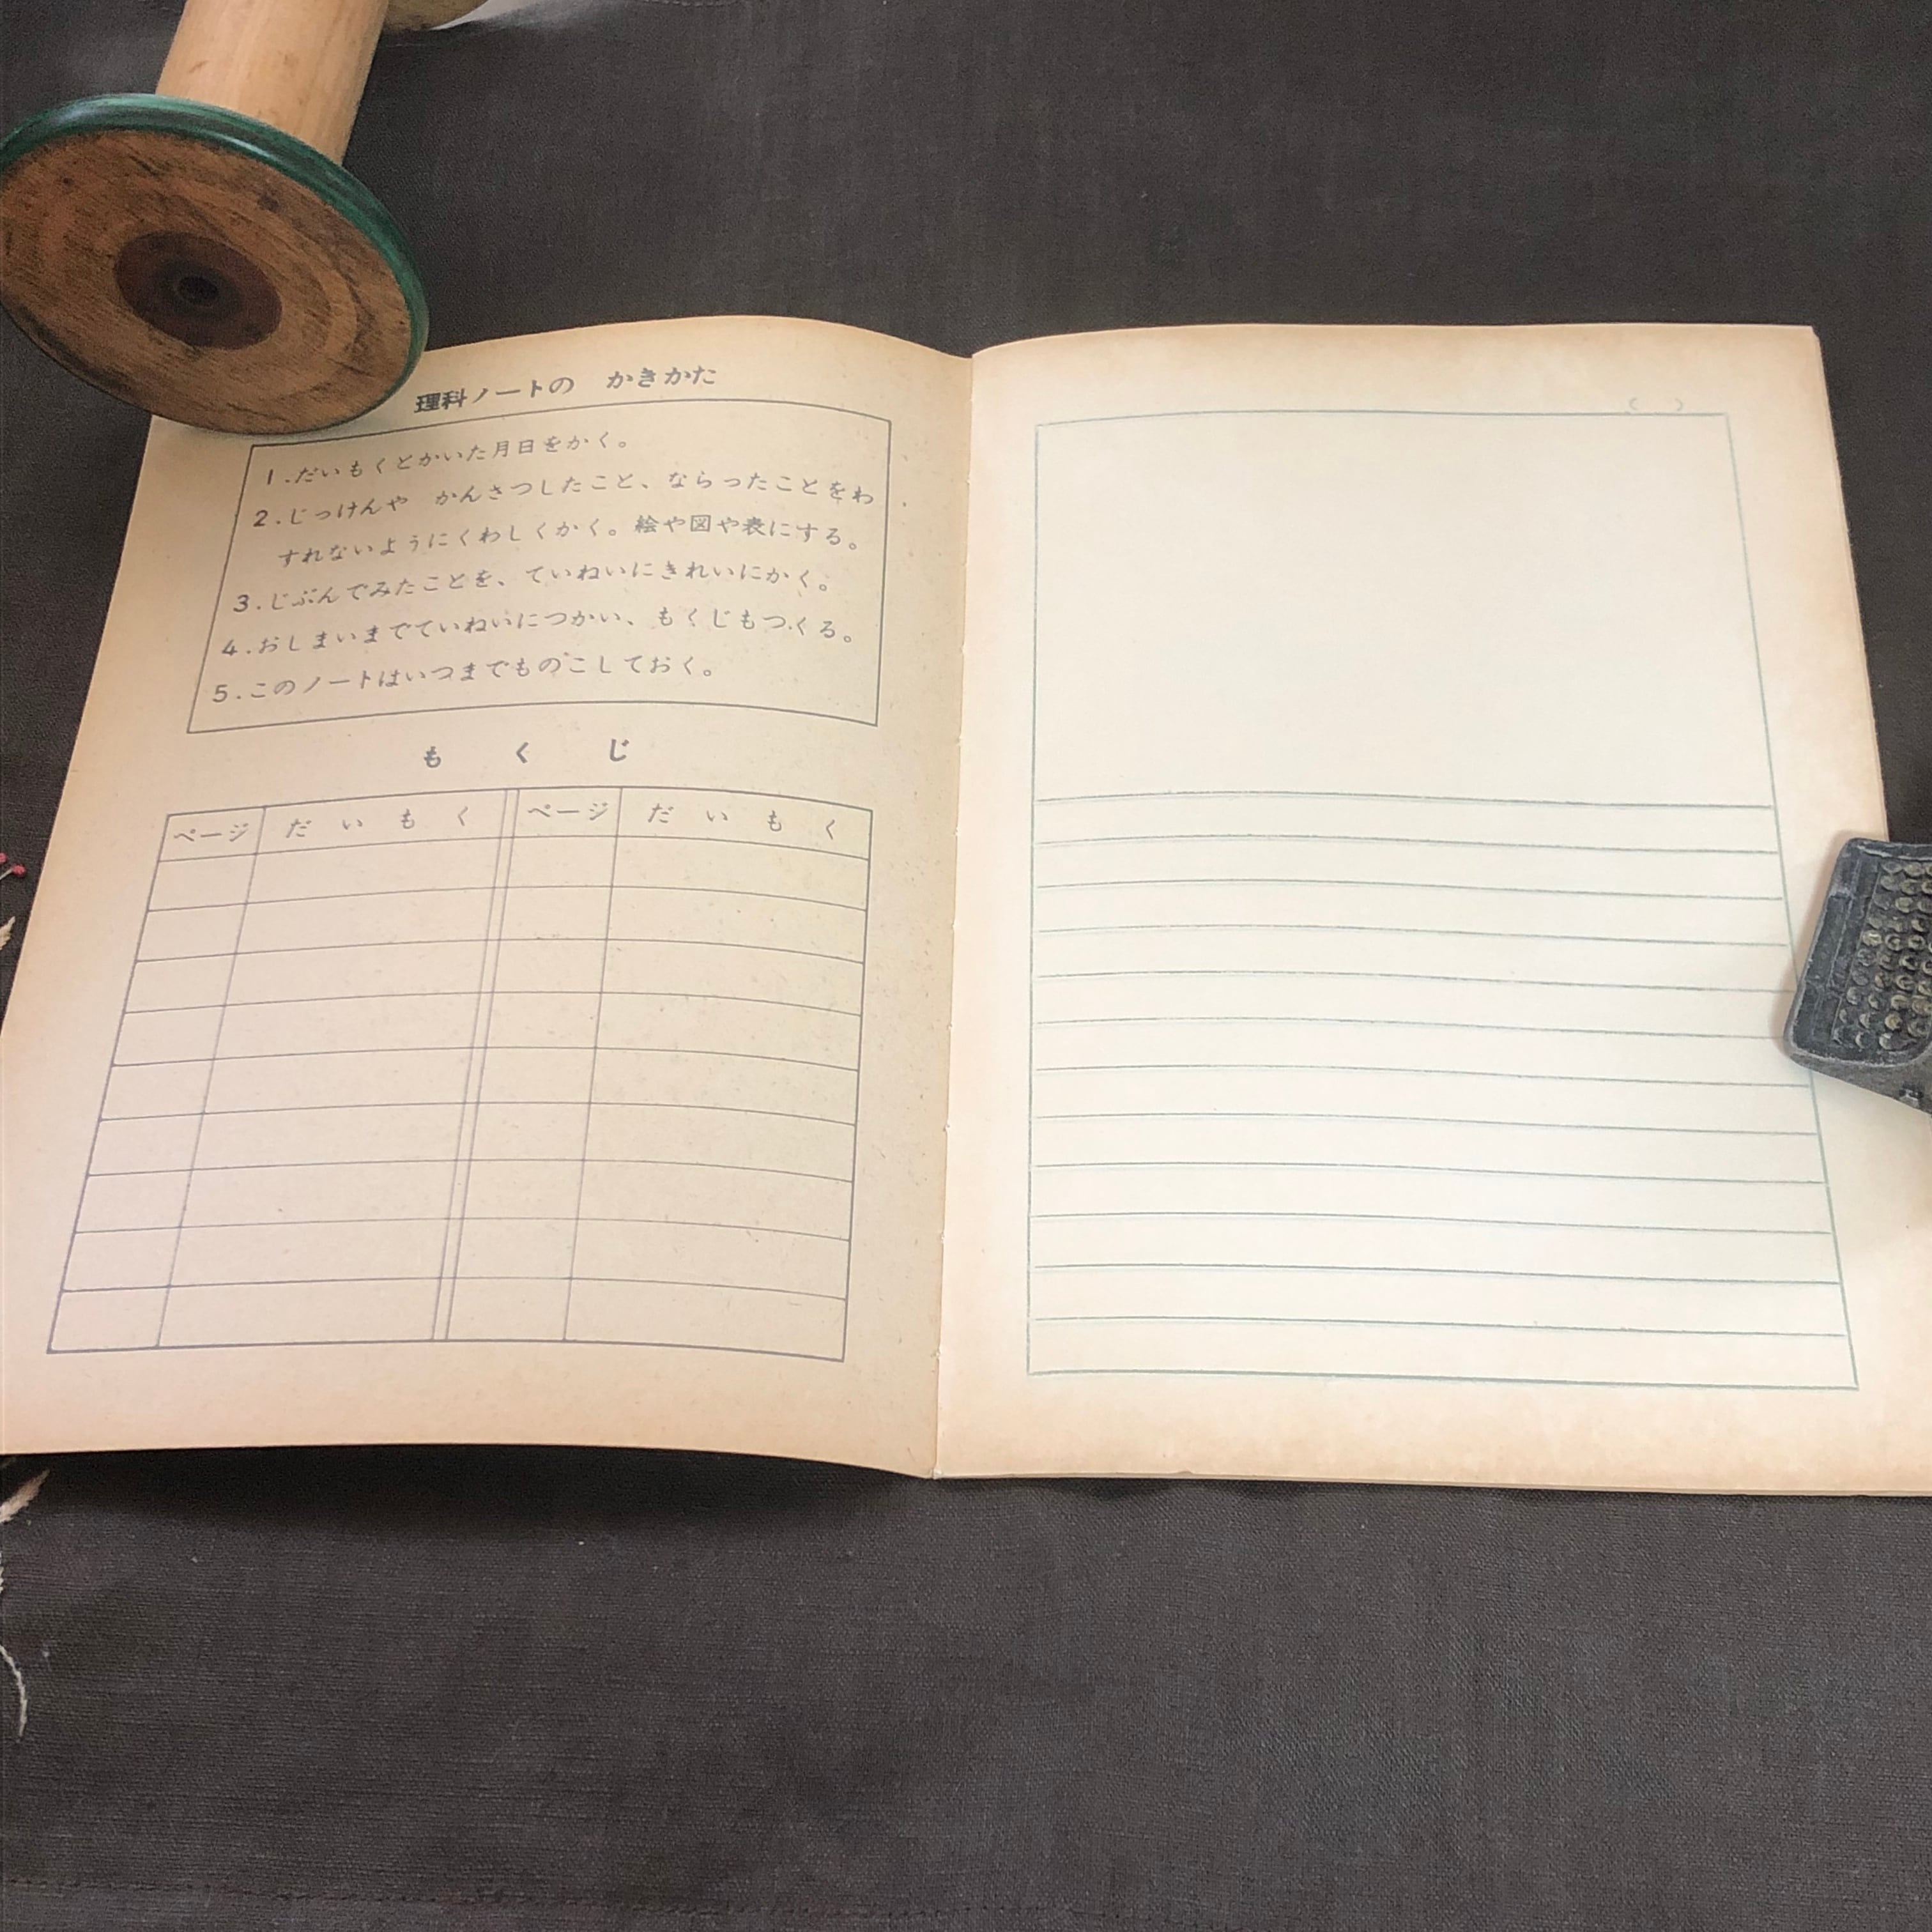 理科ノートの　かきかた
1.だいもくとかいた月日をかく。
2.じっけんや　かんさつしたこと、ならったことをわ
すれないようにくわしくかく。絵や図や表にする。
3.じぶんでみたことを、ていねいにきれいにかく。
4.おしまいまでていねいにつかい、もくじもつくる。
5.このノートはいつまでものこしておく。
も　く　じ
ページ　だ い も く　ページ　だ い も く
(　)